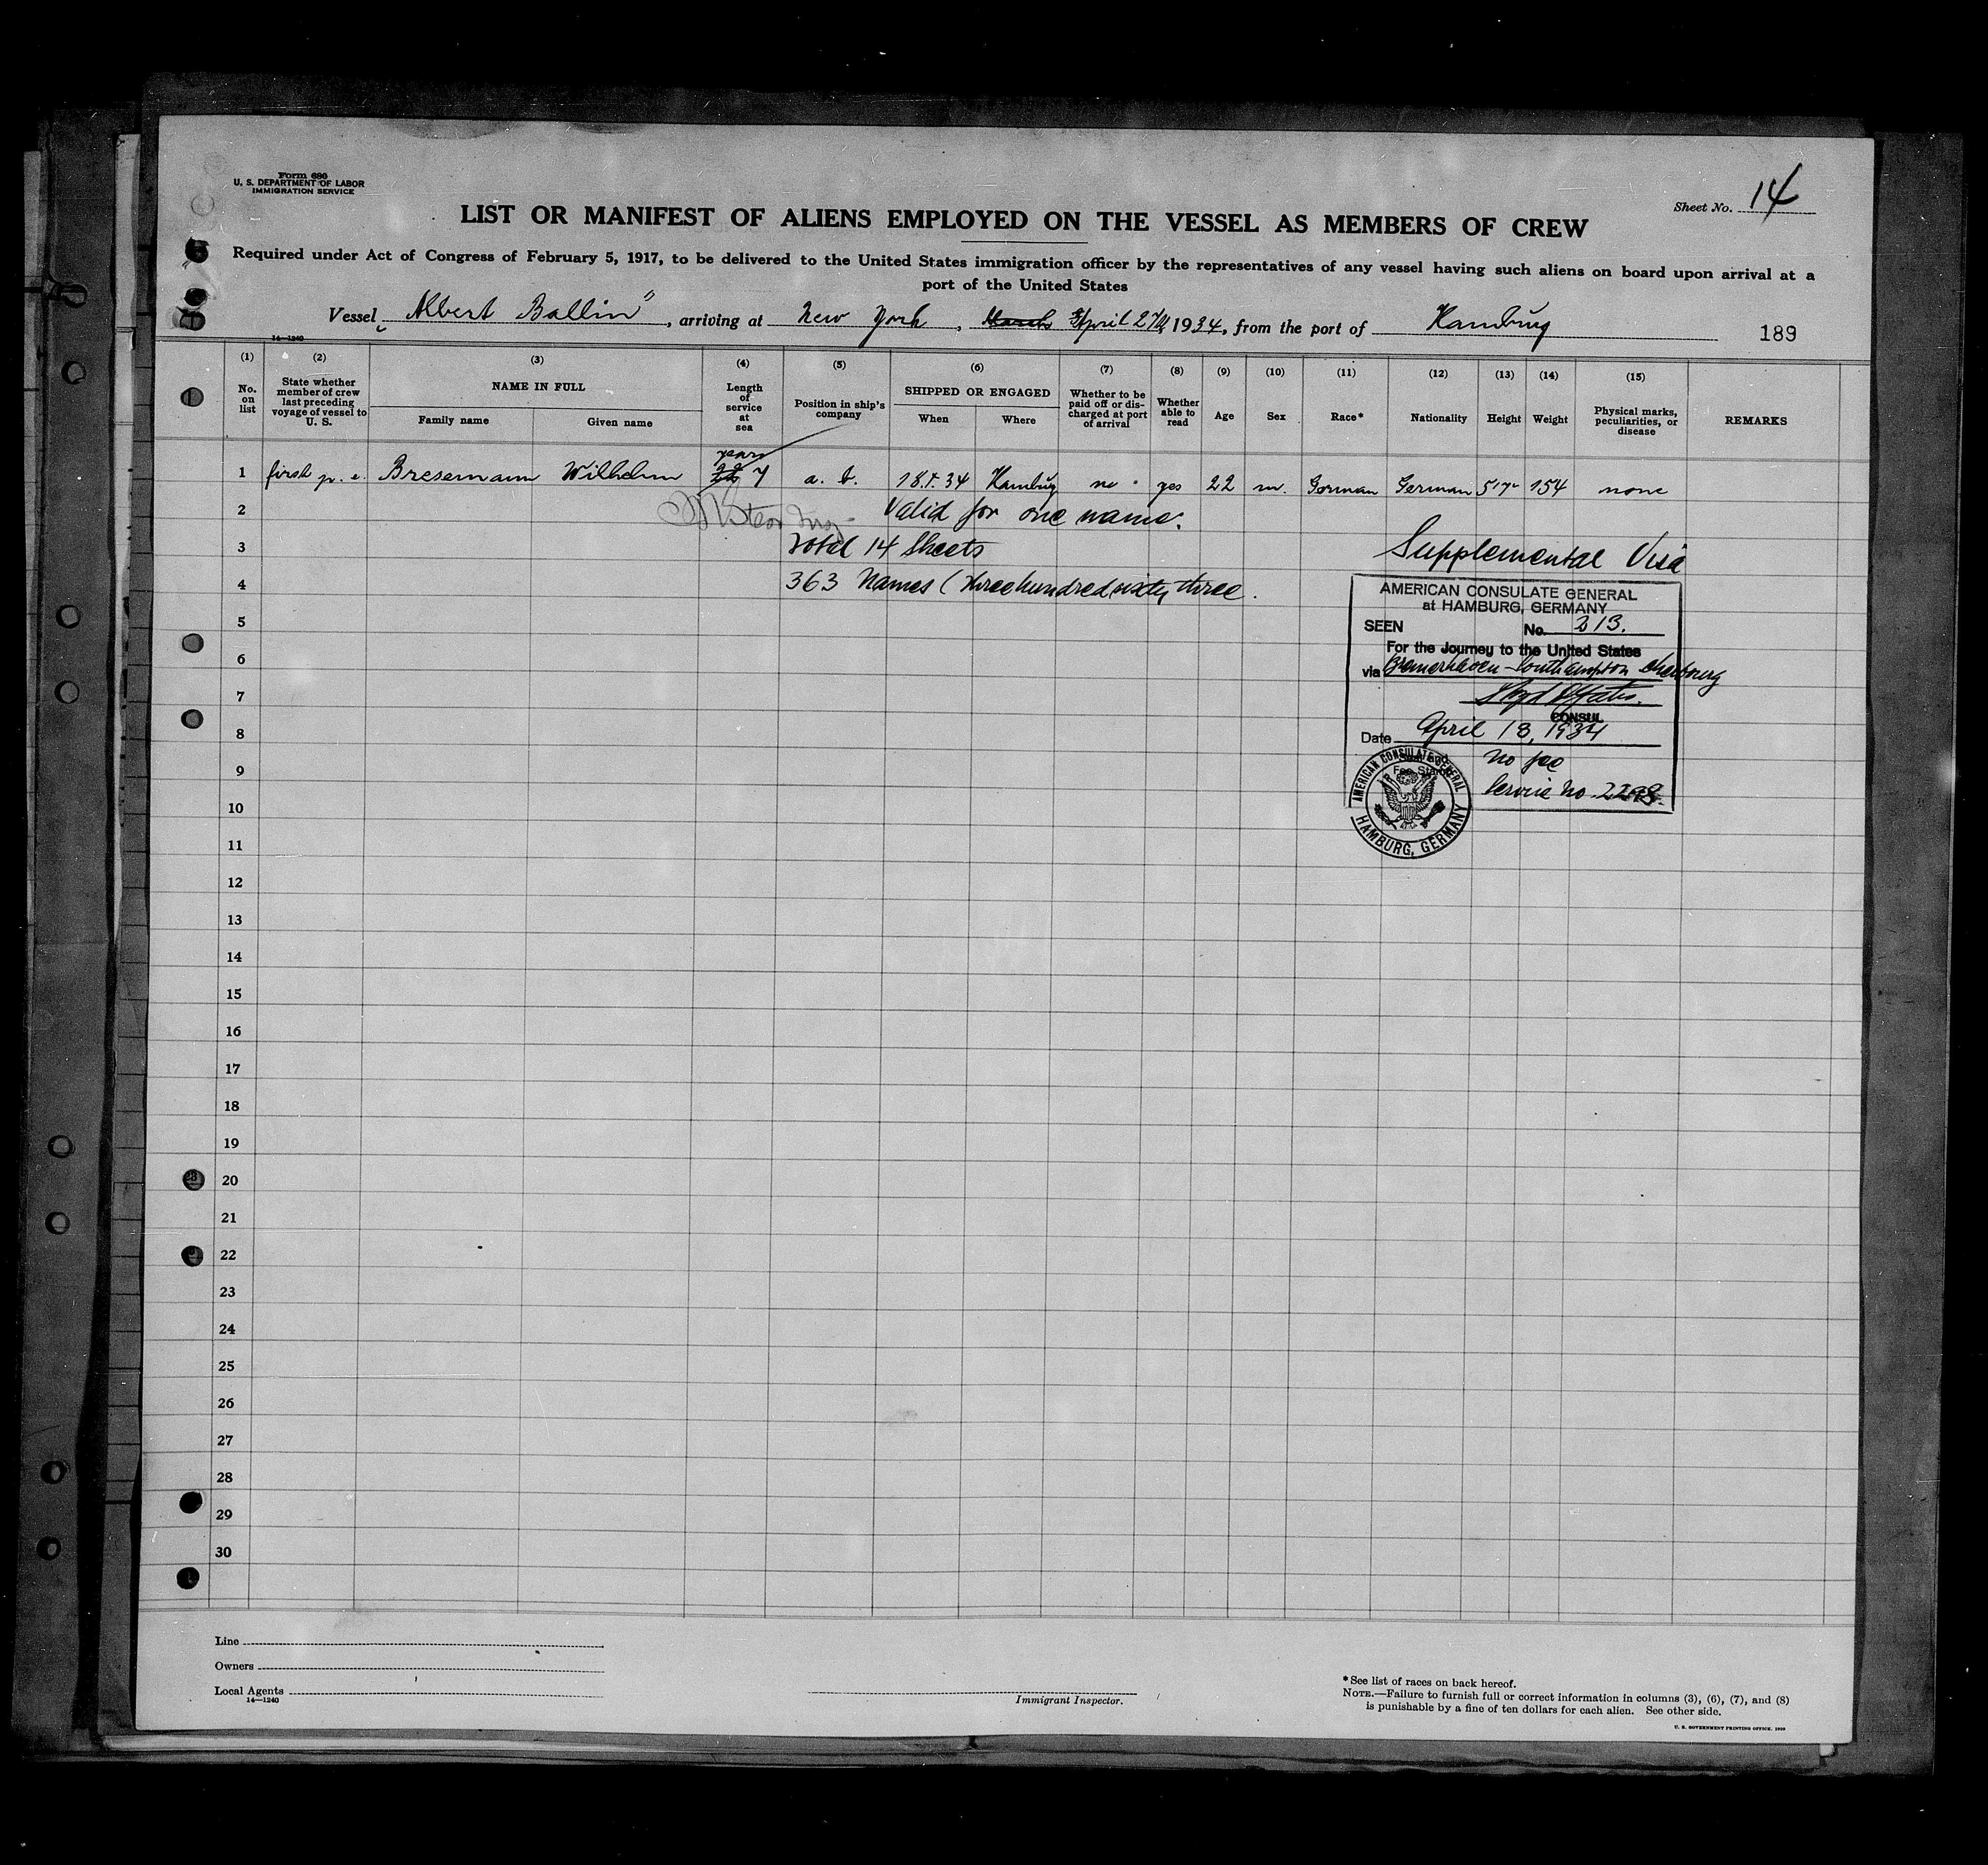 Form 680
U. S. DEPARTMENT OF LABOR
IMMIGRATION SERVICE
Sheet No. 14
LIST OR MANIFEST OF ALIENS EMPLOYED ON THE VESSEL AS MEMBERS OF CREW
Required under Act of Congress of February 5, 1917, to be delivered to the United States immigration officer by the representatives of any vessel having such aliens on board upon arrival at a
port of the United States
Vessel „Albert Ballin“, arriving at New York, March April 27th 1934, from the port of Hamburg
189
14—1240
(1) No. on list
(2) State whether member of crew last preceding voyage of vessel to U. S.
(3) NAME IN FULL
Family name
Given name
(4) Length of service at sea
(5) Position in ship's company
(6) SHIPPED OR ENGAGED
When
Where
(7) Whether to be paid off or discharged at port of arrival
(8) Whether able to read
(9) Age
(10) Sex
(11) Race*
(12) Nationality
(13) Height
(14) Weight
(15) Physical marks, peculiarities, or disease
REMARKS
years
1 first Bresemann Wilhelm 7 a. b. 18.4.34 Hamburg no yes 22 m. German German 154 none
2 Valid for one name.
3 Total 14 Sheets
Supplemental Visa
4 363 Names (three hundred sixty three.
AMERICAN CONSULATE GENERAL
at HAMBURG, GERMANY
5
SEEN No. 213.
6
For the Journey to the United States
via Bremerhaven - Southampton Cherbourg
7
CONSUL
8
Date April 18, 1934
No fee
9
Fee Stamp
Service No 2298
10
AMERICAN CONSULATE GENERAL
HAMBURG, GERMANY
11
12
13
14
15
16
17
18
19
20
21
22
23
24
25
26
27
28
29
30
Line
Owners
Local Agents
14—1240
Immigrant Inspector.
*See list of races on back hereof.
NOTE.—Failure to furnish full or correct information in columns (3), (6), (7), and (8)
is punishable by a fine of ten dollars for each alien. See other side.